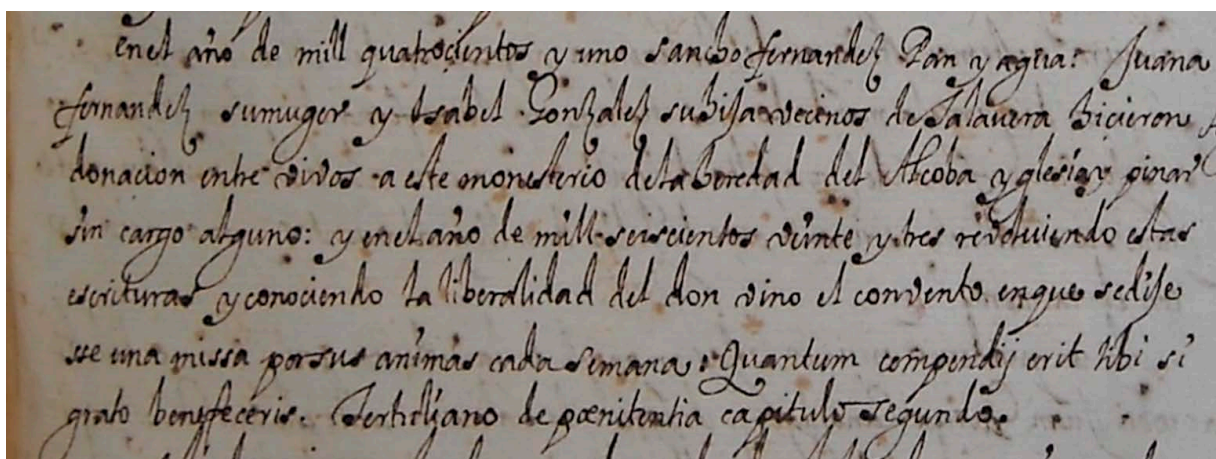 enel año de mill quatrocientos y uno sancho fernandez Pan y agua: Juana
fernandez sumuger y Isabel Gonzalez suhija vecinos de Talavera hicieron
donacion entre vivos a este monesterio dela heredad del Alcoba yglesia y pinar
sin cargo alguno: y enel año de mill seiscientos veinte y tres revolviendo estas
escrituras y conociendo la liberalidad del don vino el convento enque sedije
sse una missa porsus animas cada semana. Quantum compendij erit tibi si
grato beneffeceris. Tertuljano de pœnitentia capitulo segundo.